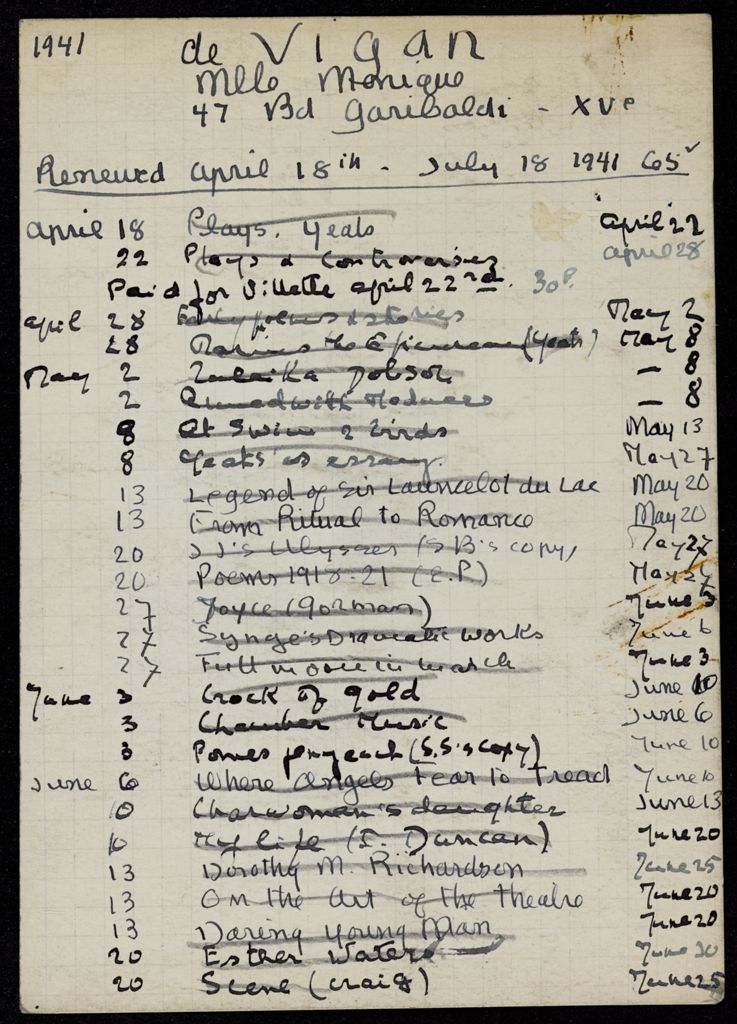 1941
de Vigan
Mlle Monique
47 Bd Garibaldi - XVe
Renewed April 18th - July 18 1941 65
April 18 Plays. Yeats April 22
22 Plays & Controversies April 28
Paid for Villette April 22nd. 30f.
April 28 Early poems & stories May 2
28 Marius the Epicurean (Yeats) May 8
May 2 Zuleika Dobson - 8
2 Armed with Madness - 8
8 At Swim 2 Birds May 13
8 Yeats's essays May 27
13 Legend of Sir Launcelot du Lac May 20
13 From Ritual to Romance May 20
20 JJ's Ulysses (SB's copy) May 27
20 Poems 1918-21 (E.P) May 27
27 Joyce (Gorman) June 3
27 Synge's Dramatic Works June 6
27 Full moon in March June 3
June 3 Crock of gold June 10
3 Chamber Music June 6
3 Pomes penyeach (S.S's copy) June 10
June 6 Where Angels Fear to Tread June 10
10 Charwoman's daughter June 13
10 My Life (I. Duncan) June 20
13 Dorothy M. Richardson June 25
13 On the Art of the Theatre June 20
13 Daring Young Man June 20
20 Esther Waters June 30
20 Scene (Craig) June 25